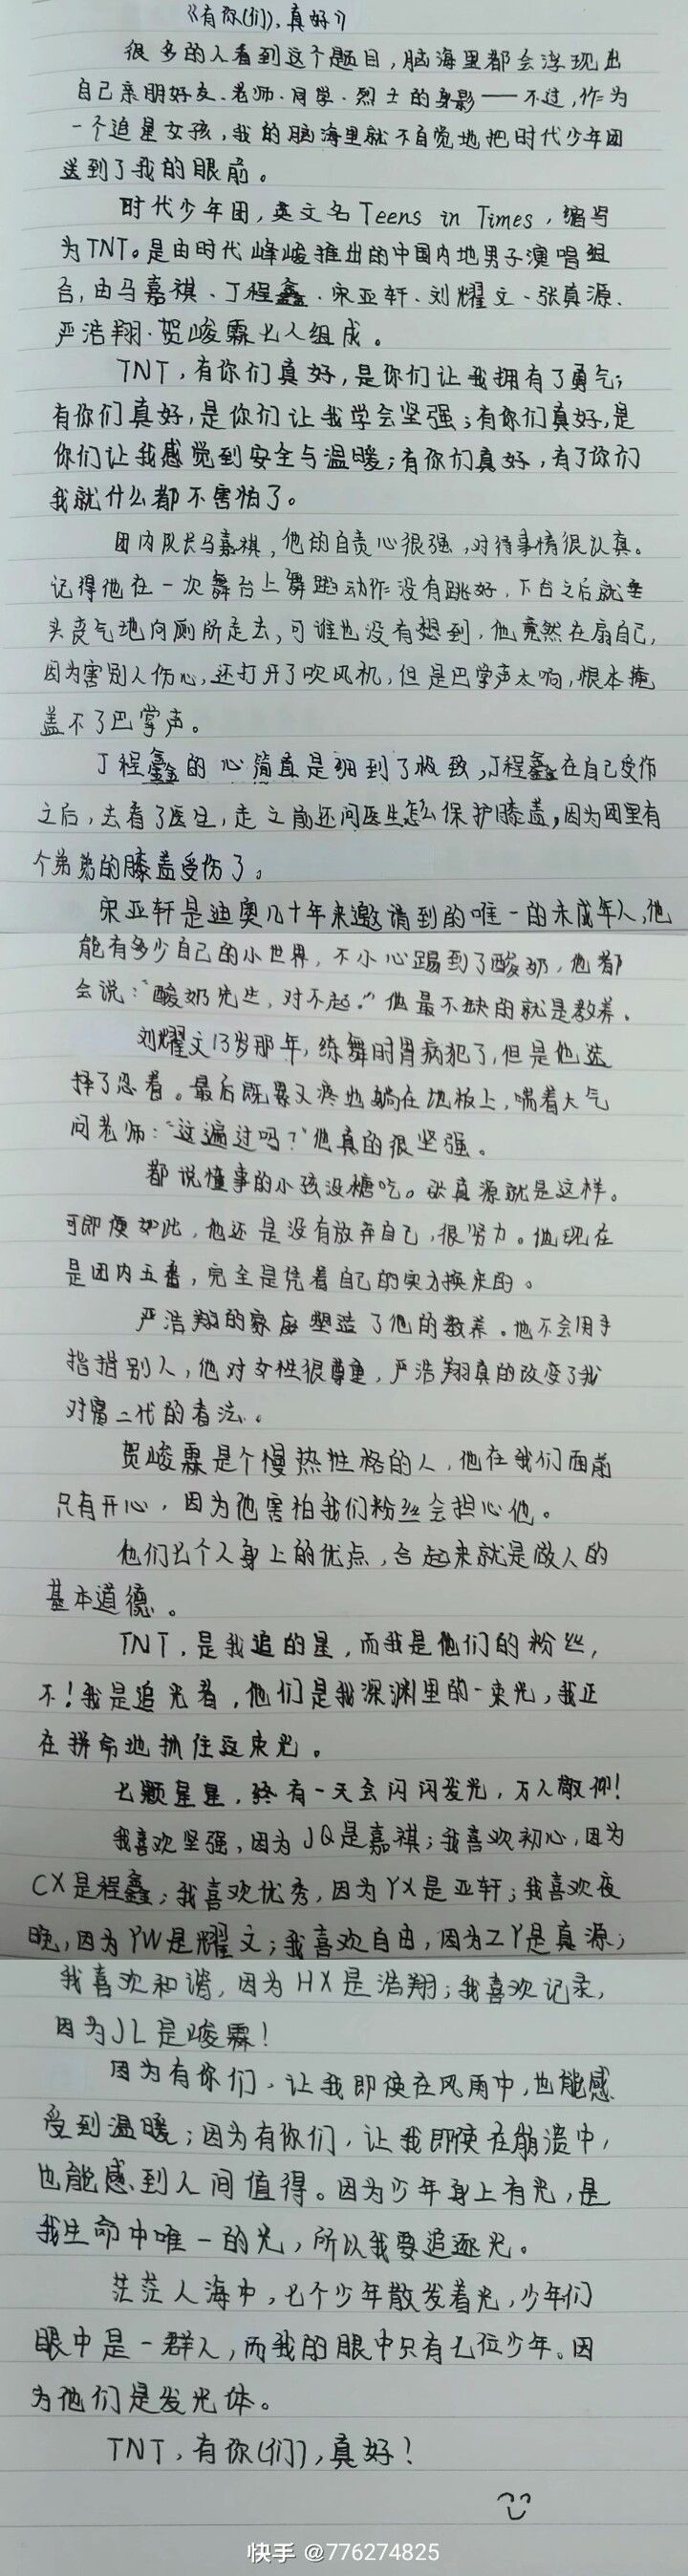 《有你(们),真好》
很多的人看到这个题目,脑海里都会浮现出
自己亲朋好友、老师、同学、烈士的身影——不过,作为
一个追星女孩,我的脑海里就不自觉地把时代少年团
送到了我的眼前。
时代少年团,英文名Teens in Times,缩写
为TNT。是由时代峰峻推出的中国内地男子演唱组
合,由马嘉祺、丁程鑫、宋亚轩、刘耀文、张真源、
严浩翔、贺峻霖七人组成。
TNT,有你们真好,是你们让我拥有了勇气;
有你们真好,是你们让我学会坚强;有你们真好,是
你们让我感觉到安全与温暖;有你们真好,有了你们
我就什么都不害怕了。
团内队长马嘉祺,他的自责心很强,对待事情很认真。
记得他在一次舞台上舞蹈动作没有跳好,下台之后就垂
头丧气地向厕所走去,可谁也没有想到,他竟然在扇自己,
因为害别人伤心,还打开了吹风机,但是巴掌声太响,根本掩
盖不了巴掌声。
丁程鑫的心简直是细到了极致,丁程鑫在自己受伤
之后,去看了医生,走之前还问医生怎么保护膝盖,因为团里有
个弟弟的膝盖受伤了。
宋亚轩是迪奥几十年来邀请到的唯一的未成年人,他
能有多少自己的小世界,不小心踢到了酸奶,他都
会说:“酸奶先生,对不起。”他最不缺的就是教养。
刘耀文13岁那年,练舞时胃病犯了,但是他选
择了忍着。最后既累又疼地躺在地板上,喘着大气
问老师:“这遍过吗?”他真的很坚强。
都说懂事的小孩没糖吃。张真源就是这样。
可即便如此,他还是没有放弃自己,很努力。他现在
是团内五番,完全是凭着自己的实力换来的。
严浩翔的家庭塑造了他的教养。他不会用手
指指别人,他对女性很尊重,严浩翔真的改变了我
对富二代的看法。
贺峻霖是个慢热性格的人,他在我们面前
只有开心,因为他害怕我们粉丝会担心他。
他们七个人身上的优点,合起来就是做人的
基本道德。
TNT,是我追的星,而我是他们的粉丝,
不!我是追光者,他们是我深渊里的一束光,我正
在拼命地抓住这束光。
七颗星星,终有一天会闪闪发光,万人敬仰!
我喜欢坚强,因为JQ是嘉祺;我喜欢初心,因为
CX是程鑫;我喜欢优秀,因为YX是亚轩;我喜欢夜
晚,因为YW是耀文;我喜欢自由,因为ZY是真源;
我喜欢和谐,因为HX是浩翔;我喜欢记录,
因为JL是峻霖!
因为有你们,让我即使在风雨中,也能感
受到温暖;因为有你们,让我即使在崩溃中,
也能感到人间值得。因为少年身上有光,是
我生命中唯一的光,所以我要追逐光。
茫茫人海中,七个少年散发着光,少年们
眼中是一群人,而我的眼中只有七位少年。因
为他们是发光体。
TNT,有你(们),真好!
快手 @776274825